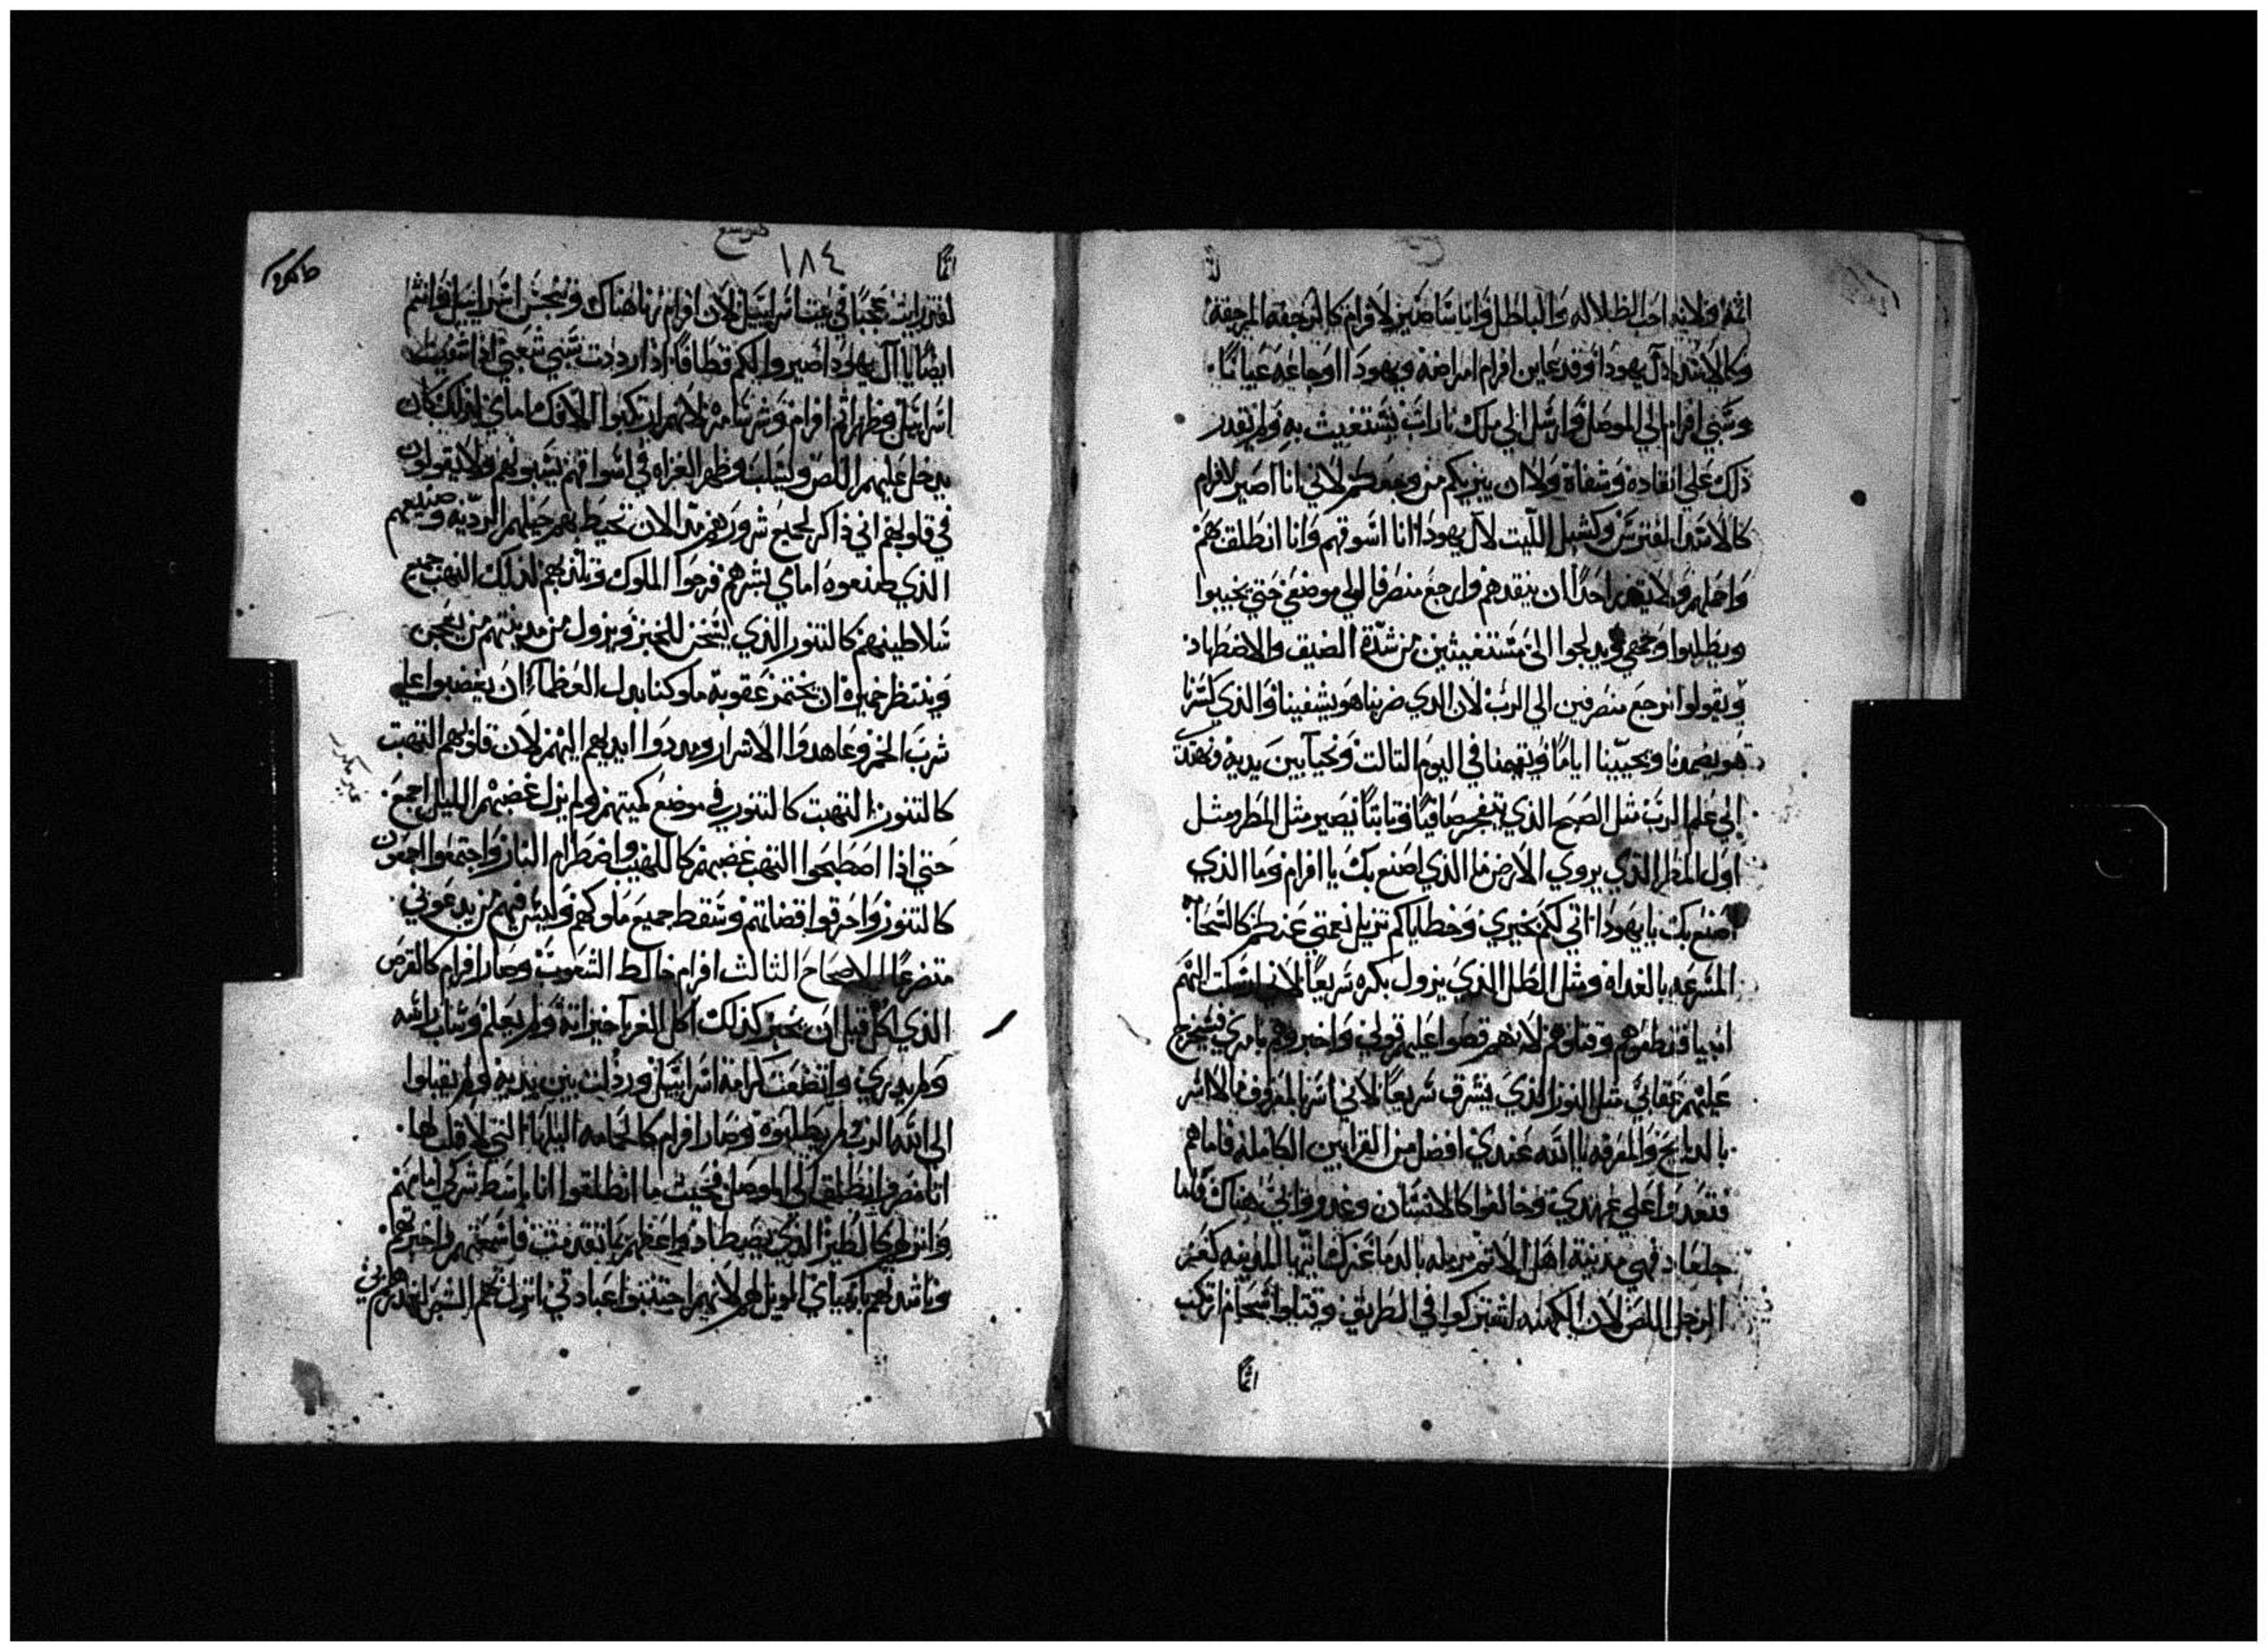 اثمه ولانه احب الظلاله والباطل وانا ساصير لافرام كالرجفه المرجفة
وكالاسد لال يهودا وقد عاين افرام امراضه ويهودا اوجاعه عيانا
وسبي افرام الي الموصل وارسل الي ملك ناراب يستغيث به ولم يقدر
ذلك علي انقاده وشفاة ولا ان يبريكم من وجعكم لاني انا اصير لافرام
كالاسد المفترس وكشبل الليث لال يهودا انا اسوقهم وانا انطلق بهم
واحملهم ولا يقدر احدا ان ينقدهم وارجع منصرفا الي موضعي حتي يخيبوا
ويطلبوا وجهي ويدلجوا الي مستغيثين من شدة الضيق والاضطهاد
ويقولوا نرجع منصرفين الي الرب لان الدي ضربنا هو يشفينا والذي كسرنا
هو يضمدنا ويحيينا اياما ويقيمنا في اليوم التالت ونحيا بين يديه ونهتدي
الي علم الرب مثل الصبح الذي يتفجر صافيا وتابتا يصير مثل المطر ومثل
اول المطر الذي يروي الارض ما الذي اصنع بك يا افرام وما الذي
اصنع بك يا يهودا اتي لكم بخيري وخطاياكم تزيل نعمتي عندكم كالسحابة
المسرعه بالغداه ومثل الطل الذي يزول بكره سريعا لاني ارسلت اليهم
انبيا فقطفوهم وقتلوهم لانهم قطوا عليهم قولي واخبروهم بامري فيخرج
عليهم عقابي مثل النور الذي يشرق سريعا لاني اسر بالمعروف لا اسر
بالذبايح والمعرفه بالله عندي افضل من القرابين الكامله فاما هم
فتعدوا علي عهدي وخالفوا كالانسان وغدروا بي هناك فاما
جلعاد فهي مدينة اهل الاثم مرمله بالدما عزك شانها المدينه كعز
الرجل اللص لان الكهنه اشتركوا في الطريق وقتلوا شحام ارتكب
اثما
هوسع
١٨٤
اثما
لقد رايت عجبا في بيت اسراييل لان افرام زنا هناك وتنجس اسراييل وانتم
ايضا يا ال يهودا اصيروا لكم قطافا اذا رددت سبي شعبي اذا شفيت
اسراييل وظهر اثم افرام وشر سامره لانهم ارتكبوا الافك امامي لذلك كان
يدخل عليهم اللص ويسلب وظهر الغزاه في اسواقهم يسبونهم ولا يقولون
في قلوبهم اني ذاكر لجميع شرورهم مند الان تحيط بهم حيلهم الرديه وصنيعهم
الذي صنعوه امامي بشرهم فرحوا الملوك وبكذبهم لذلك التهب جميع
سلاطينهم كالتنور الذي يسخن للخبز ويزول من مدينتهم من يعجن
وينتظر خميره ان يختمر عقوبة ملوكنا بدل العظماء ان يغضبوا علي
شرب الخمر وعاهدوا الاشرار ومددوا ايديهم اليهم لان قلوبهم التهبت
كالتنور التهبت كالتنور في موضع كمينهم ولم يزل غضبهم الليل اجمع
حتي اذا اصطبحوا التهب غضبهم كاللهيب واضطرام النار واجتمعوا اجمعون
كالتنور واحرقوا قضاتهم وسقط جميع ملوكهم وليس فيهم من يدعوني
متضرعا الاصحاح الثالث افرام خالط الشعوب وصار افرام كالقرص
الذي اكل قبل ان يخبز كذلك اكل الغربا خيراته ولم يعلم وشاب راسه
ولم يدري واتضعت كرامة اسراييل ورذلت بين يديه ولم يقبلوا
الي الله الرب لم يطلبوه وصار افرام كالحمامه البلها التي لا قلب لها
اتا مصر وانطلق الي الموصل فحيث ما انطلقوا انا باسط شركي امامهم
وانزلهم كالطير الذي يصطاد واعظهم بما تقدمت فاسمعتهم واخبرتهم
وناشدتهم بانبياي الويل لهم لانهم اجتنبوا عبادتي ساتزل بهم الشر لغدرهم بي